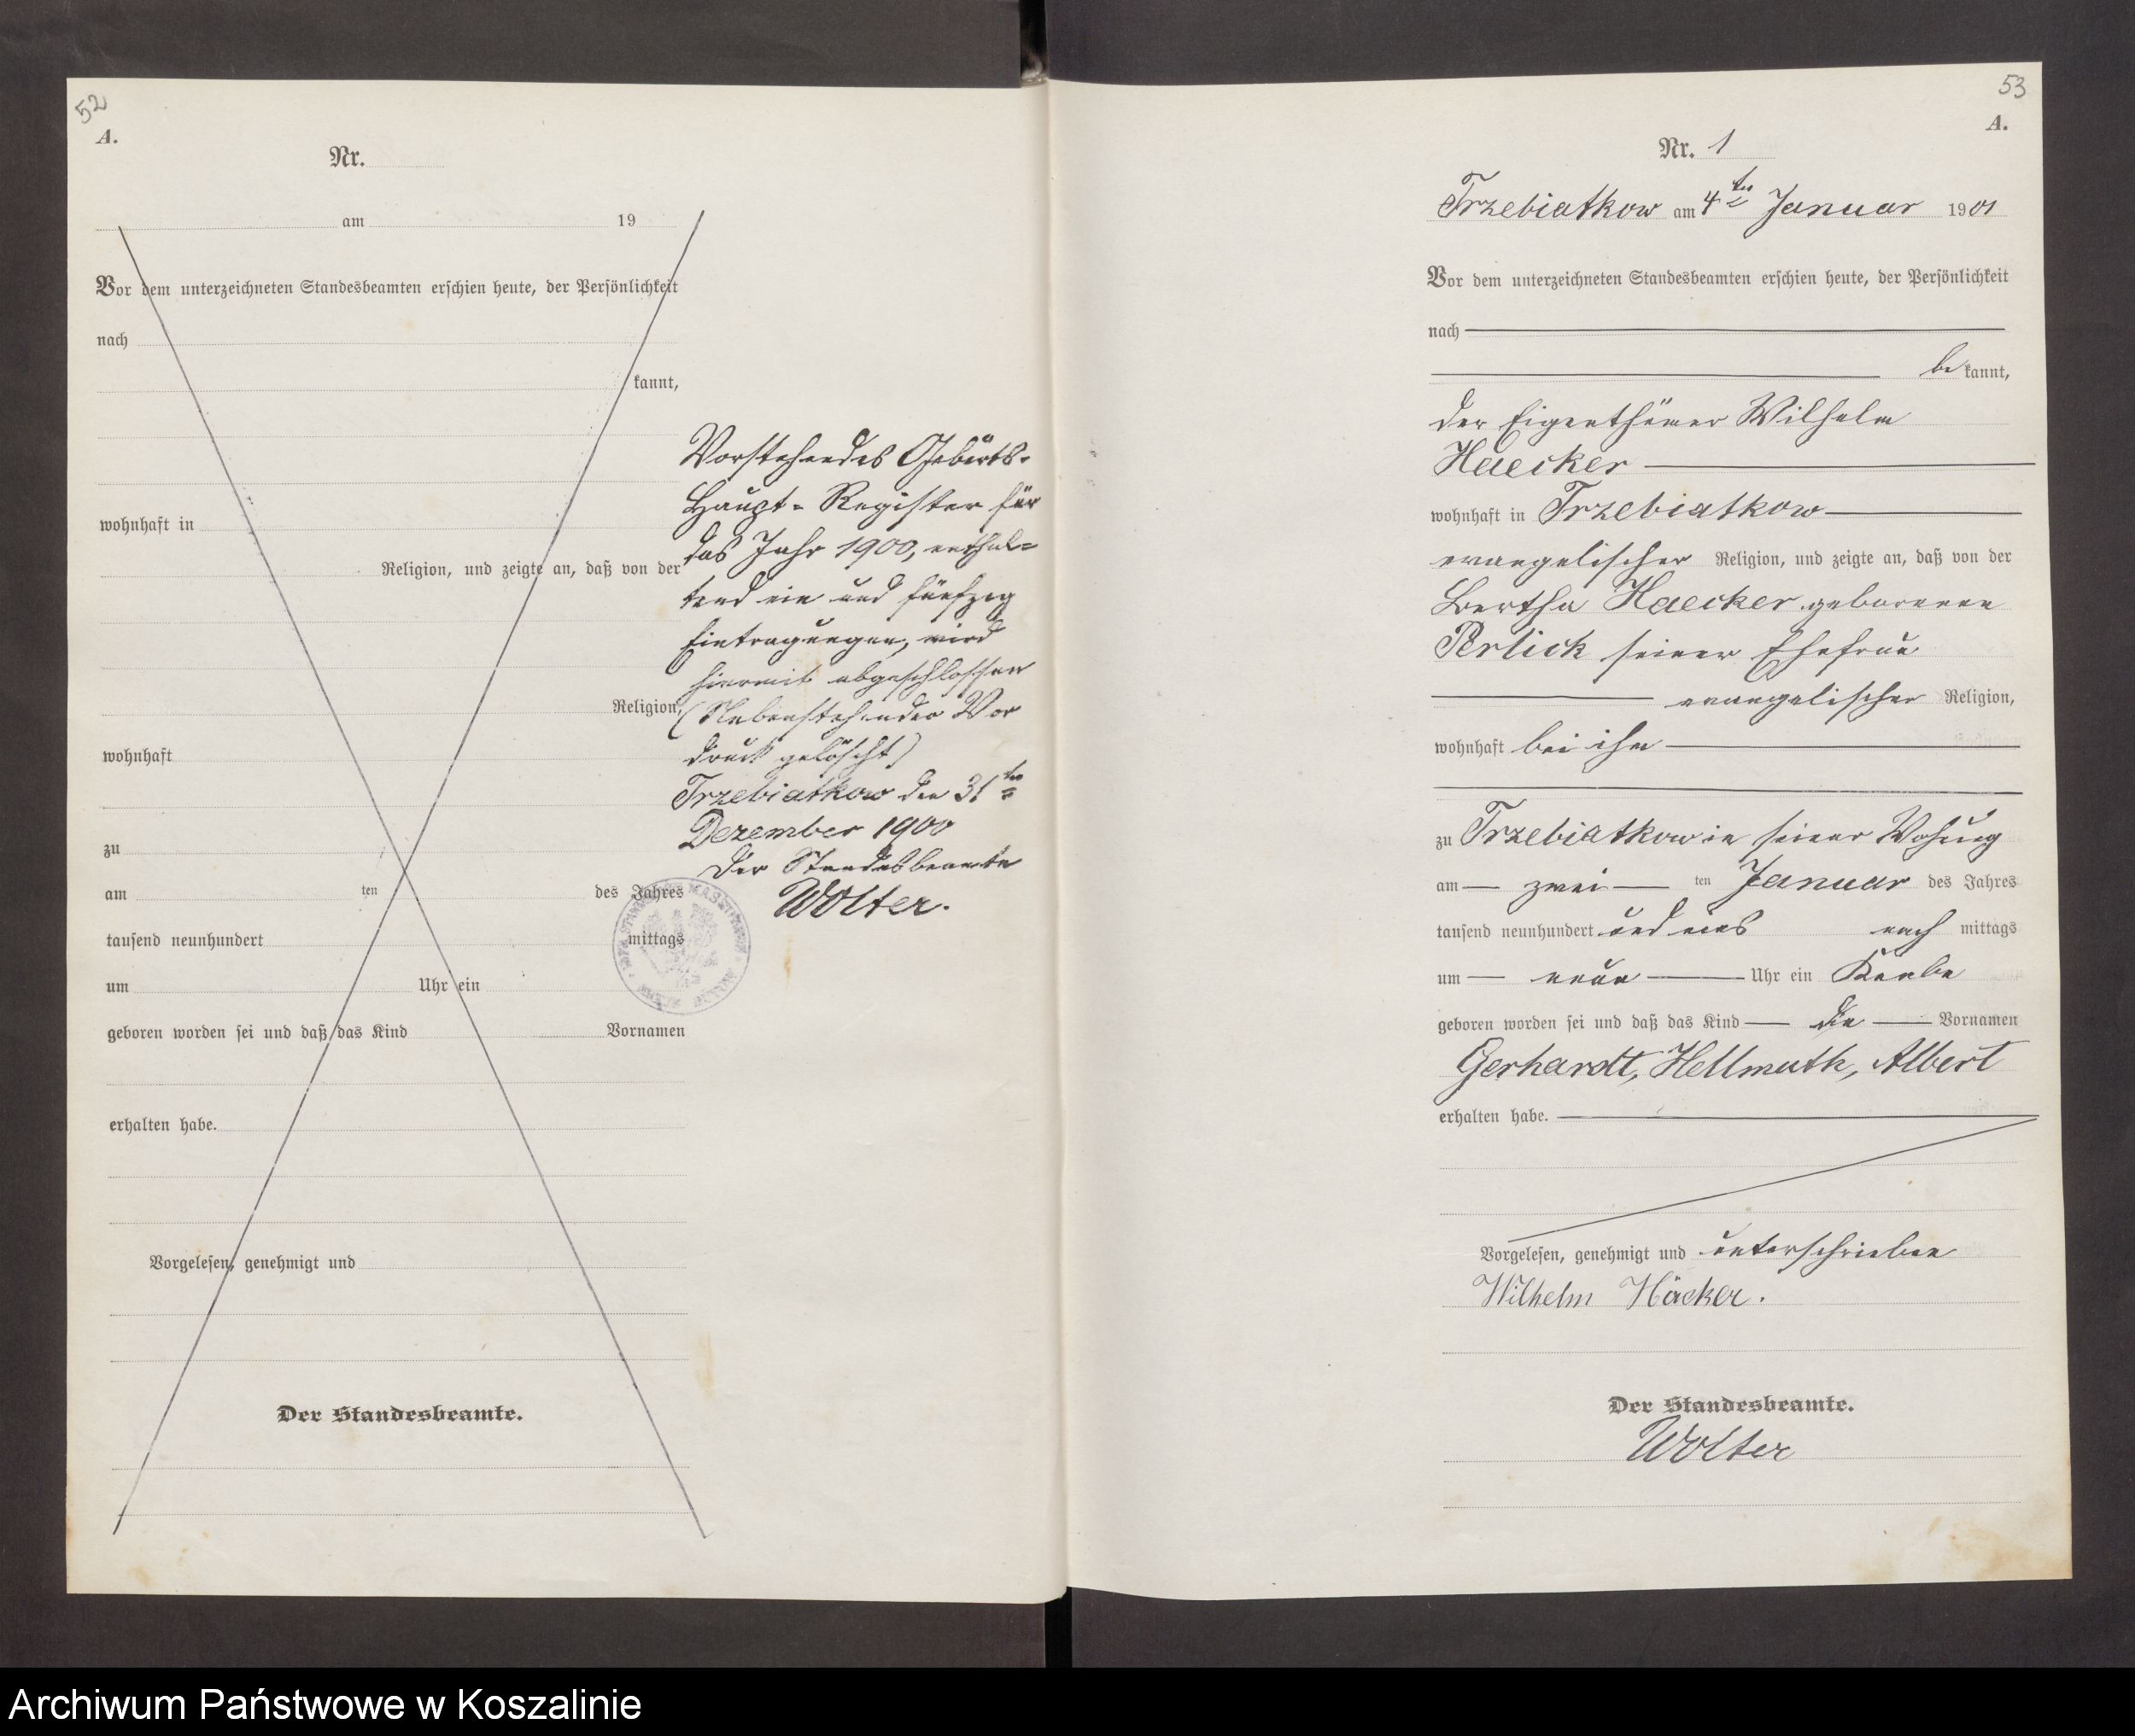 52
A.
Nr.
am 19
Vor dem unterzeichneten Standesbeamten erschien heute, der Persönlichkeit
nach
kannt,
wohnhaft in
Religion, und zeigte an, daß von der
Religion,
wohnhaft
zu
am ten des Jahres
tausend neunhundert mittags
um Uhr ein
geboren worden sei und daß das Kind Vornamen
erhalten habe.
Vorgelesen, genehmigt und
Der Standesbeamte.
Vorstehendes Geburts-
Haupt-Register für
das Jahr 1900, enthal-
tend ein und fünfzig
Eintragungen, wird
hiermit abgeschlossen
(Nebenstehender Vor
druck gelöscht)
Trzebiatkow den 31ten
Dezember 1900
Der Standesbeamte
Wolter.
53
A.
Nr. 1
Trzebiatkow am 4ten Januar 1901
Vor dem unterzeichneten Standesbeamten erschien heute, der Persönlichkeit
nach
be kannt,
der Eigenthümer Wilhelm
Haecker
wohnhaft in Trzebiatkow
evangelischer Religion, und zeigte an, daß von der
Bertha Haecker geborenen
Perlick seiner Ehefrau
evangelischer Religion,
wohnhaft bei ihm
zu Trzebiatkow in seiner Wohung
am zwei ten Januar des Jahres
tausend neunhundert und eins nach mittags
um neun Uhr ein Knabe
geboren worden sei und daß das Kind die Vornamen
Gerhardt, Hellmuth, Albert
erhalten habe.
Vorgelesen, genehmigt und unterschrieben
Wilhelm Häcker.
Der Standesbeamte.
Wolter
Archiwum Państwowe w Koszalinie